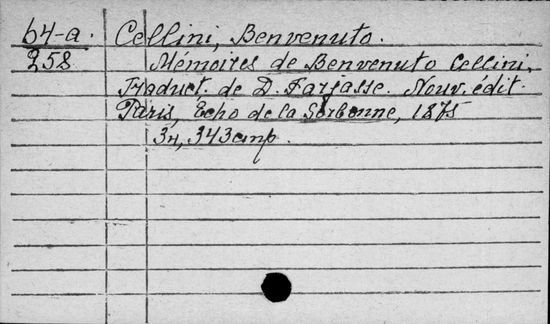 64-a. Cellini, Benvenuto.
258 Mémoires de Benvenuto Cellini,
Traduct. de D. Farjasse. Nouv. édit.
Paris, Echo de la Sorbonne, 1875
343 cmp.